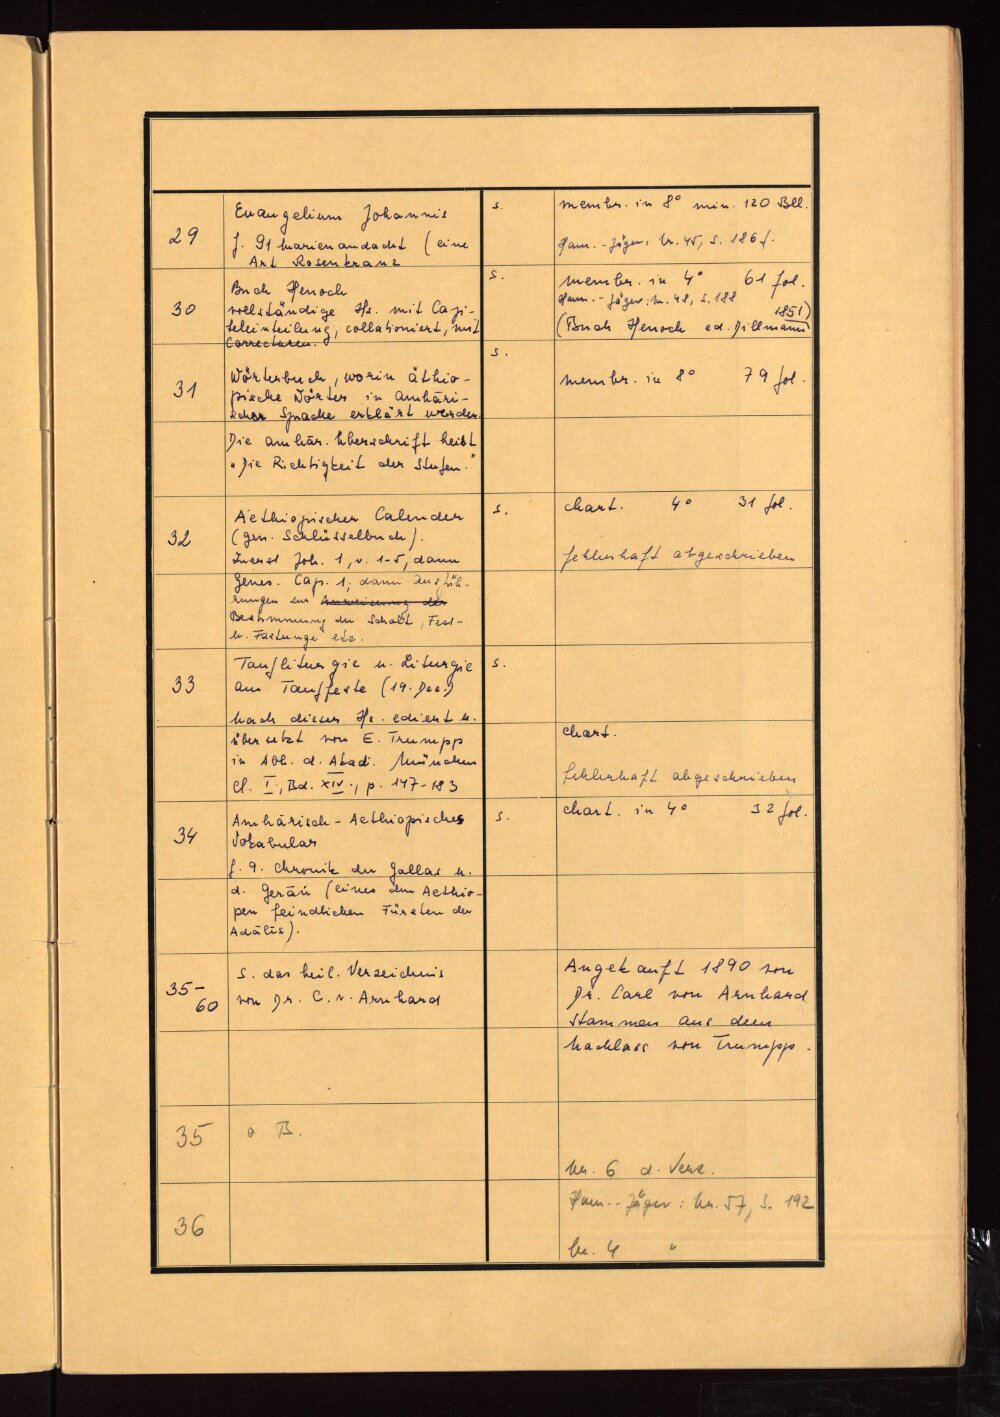 29
Evangelium Johannis
f. 91 Marienandacht (eine
Art Rosenkranz
s.
membr. in 8° min. 120 Bll.
Ham.-Jäger: Nr. 45, S. 186 f.
30
Buch Henoch
vollständige Hs. mit Capi-
teleinteilung, collationiert, mit
Correcturen.
s.
membr. in 4° 61 fol.
Ham.-Jäger: Nr. 48, S. 188
(Buch Henoch ed. Dillmann 1851)
31
Wörterbuch, worin äthio-
pische Wörter in amhäri-
scher Sprache erklärt werden.
Die amhär. Überschrift heist
"Die Richtigkeit der Stufen."
s.
membr. in 8° 79 fol.
32
Aethiopischer Calender
(gen. Schlüsselbuch).
Zuerst Joh. 1, v. 1-5, dann
Genes. Cap. 1; dann Ausfüh-
rungen zur Anweisung der
Bestimmung der Schalt, Fest-
u. Fastunge etc.
s.
chart. 4° 31 fol.
fehlerhaft abgeschrieben
33
Taufliturgie u. Liturgie
am Tauffeste (19. Dec.)
Nach dieser Hs. ediert u.
übersetzt von E. Trumpp
in Abh. d. Akad. München
Cl. I., Bd. XIV., p. 147-183
s.
chart.
fehlerhaft abgeschrieben
34
Amhärisch-Aethiopisches
Vokabular
f. 9. Chronik der Gallas u.
d. Gerāñ (eines den Aethio-
pen feindlichen Fürsten der
Adālīs).
s.
chart. in 4° 32 fol.
35-
60
s. das beil. Verzeichnis
von Dr. C. v. Arnhard
Angekauft 1890 von
Dr. Carl von Arnhard
stammen aus dem
Nachlass von Trumpp.
35
B.
Nr. 6 d. Verz.
36
Ham.-Jäger: Nr. 57, S. 192
Nr. 4 "